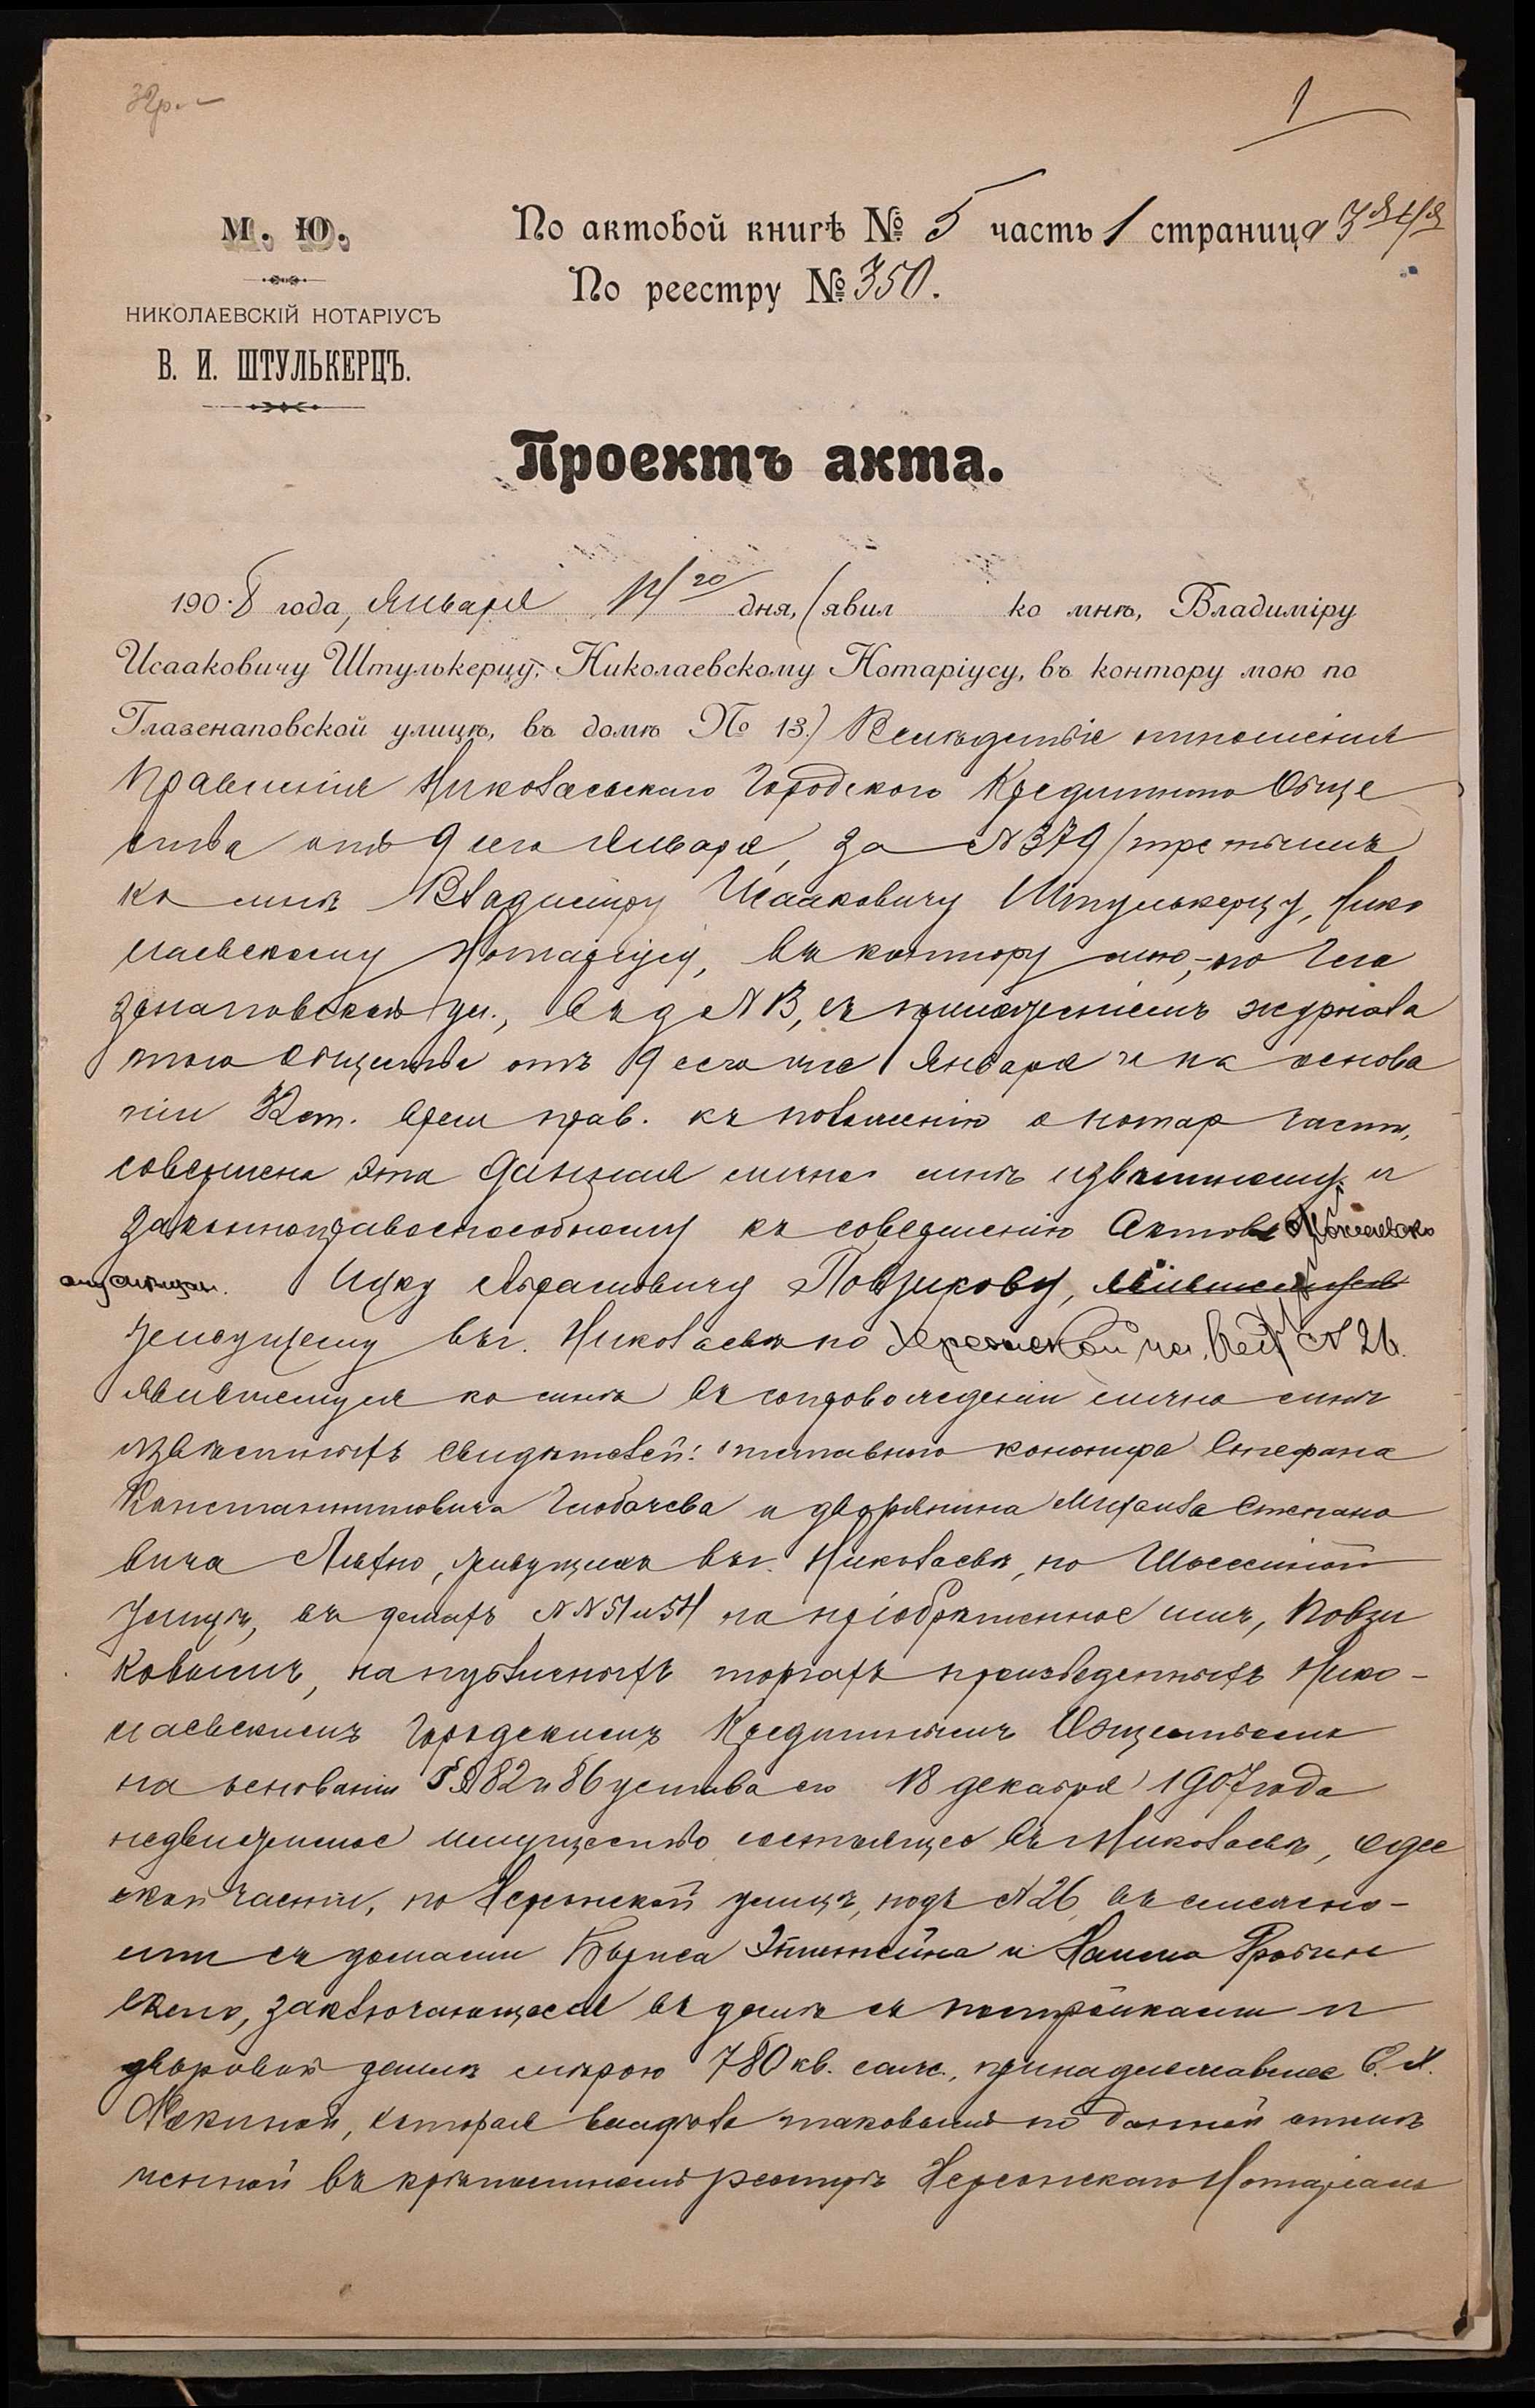 1
М. Ю.
НИКОЛАЕВСКІЙ НОТАРІУСЪ
В. И. ШТУЛЬКЕРЦЪ.
По актовой книгѣ № 5 часть 1 страница 3я 4/я
По реестру № 350.
Проектъ акта.
1908 года, Января 14/20 дня, (явил ко мнѣ, Владиміру
Исааковичу Штулькерцу, Николаевскому Нотаріусу, въ контору мою по
Глазенаповской улицѣ, въ домѣ № 13.) Вслѣдствіе отношенія
Правленія Николаевскаго Городского Кредитного Обще
ства отъ 9 сего Января, за № 379
ко мнѣ Владиміру Исааковичу Штулькерцу, Нико
лаевскому Нотаріусу, въ контору мою, по Гла
зенаповской ул., въ д № 13, съ приложеніемъ журнала
того Общества отъ 9 сего же Января и на основа
ніи Врем прав. къ положенію о нотар части,
совершена эта Данная лично мнѣ извѣстному и
законноправоспособному къ совершенію Актовъ Николаевско
му мѣщан. Ицку Абрамовичу Повзикову,
живущему въ г. Николаевѣ по Херсонской ул. № 26.
явившемуся ко мнѣ въ сопровожденіи лично мнѣ
извѣстныхъ свидѣтелей: Стефана
Константиновича Глобачева и дворянина Михаила Степано
вича живущихъ въ г. Николаевѣ, по
улицѣ, въ домахъ №№ 51 и 54 на пріобрѣтенное имъ, Повзи
ковымъ, на публичныхъ торгахъ произведенныхъ Нико-
лаевскимъ Городскимъ Кредитнымъ Обществомъ
на основаніи §§ 82 и 86 устава его 18 декабря 1907 года
недвижимое имущество состоящее въ г Николаевѣ, Одес
ской части, по Херсонской улицѣ, подъ № 26, въ смежно-
сти съ домами Бориса Этингейна и Хаима
скаго, заключающееся въ домѣ съ постройками и
дворовой земли мѣрою 780 кв. саж., принадлежавшее С. Х.
которая владѣла таковымъ по данной отмѣ
ченной въ крѣпостномъ реестрѣ Херсонскаго Нотаріаль